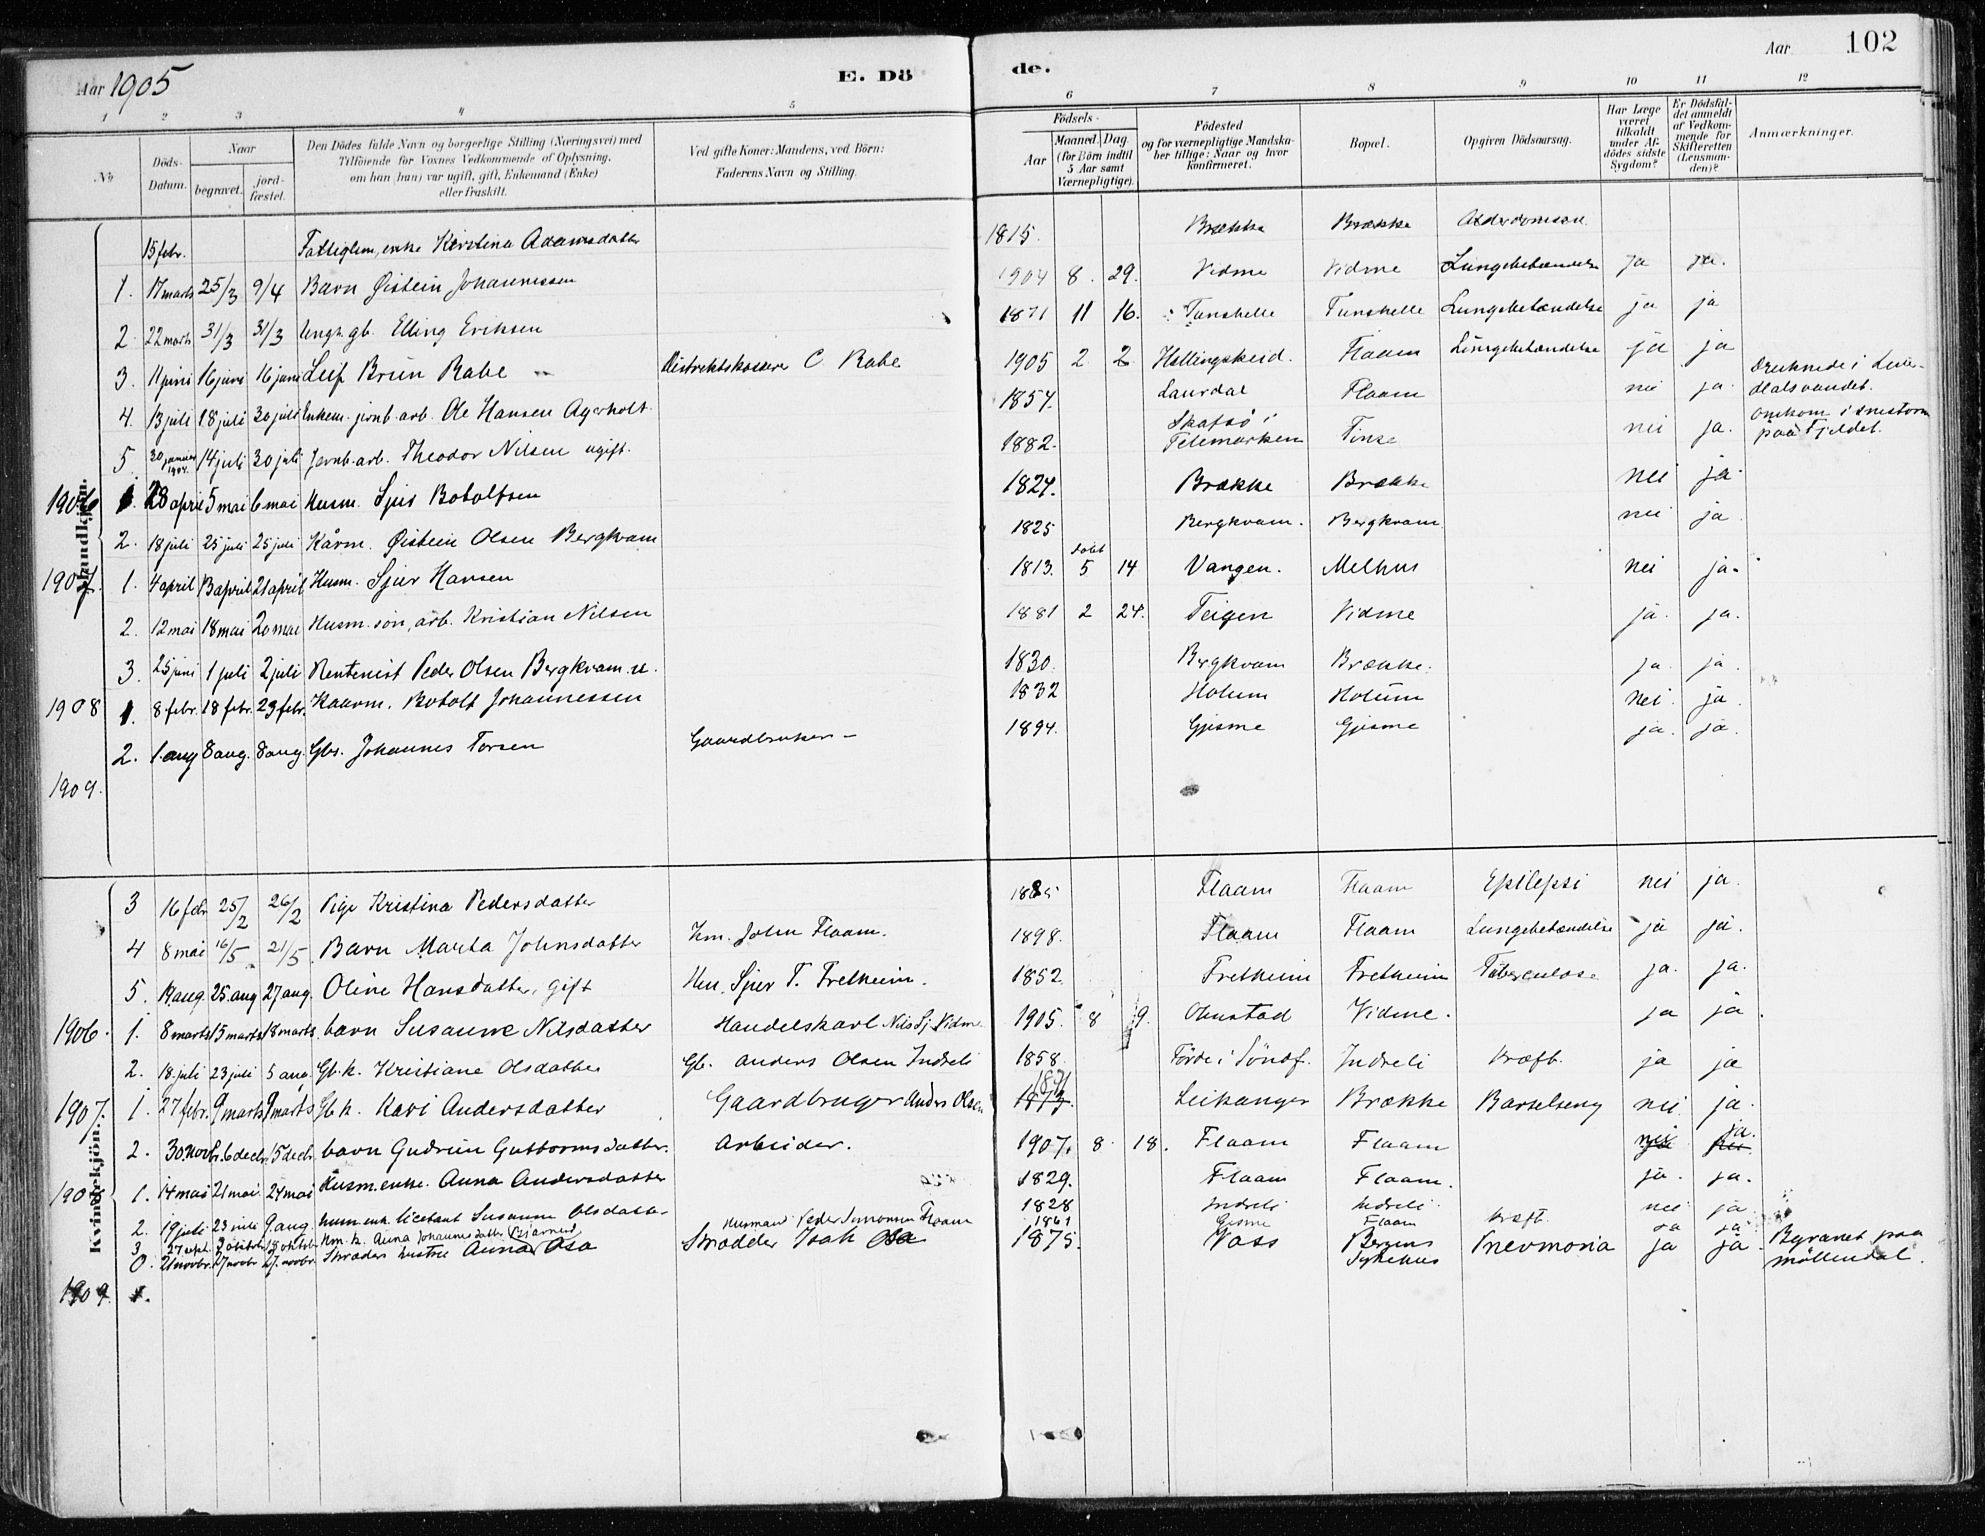 Aar 1905
E. Dö
de.
Aar
102
1 2 3 4 5 6 7 8 9 10 11 12
No
Döds-Datum.
Naar
begravet.
jord-fæstet.
Den Dödes fulde Navn og borgerlige Stilling (Næringsvei) med
Tilföiende for Voxnes Vedkommende af Oplysning,
om han (hun) var ugift, gift, Enkemand (Enke)
eller fraskilt.
Ved gifte Koner: Mandens, ved Börn:
Faderens Navn og Stilling.
Födsels-
Aar
Maaned.
Dag.
(for Börn indtil
5 Aar samt
Værnepligtige).
Födested
og for værnepligtige Mandska-
ber tillige: Naar og hvor
konfirmeret.
Bopæl.
Opgiven Dödsaarsag.
Har Læge
været
tilkaldt
under Af-
dödes sidste
Sygdom?
Er Dödsfal-
det anmeldt
af Vedkom-
mende for
Skifteretten
(Lensman-
den)?
Anmærkninger.
Mandkjön.
15 febr. Fattiglem, enke Kirstina Adamsdatter 1815. Brække Brække Alderdomssv.
1. 17 marts 25/3 9/4 Barn Øistein Johannessen 1904 8. 29. Vidme Vidme Lungebetændelse ja ja.
2 22 marts 31/3 31/3 Ungk. gb. Elling Eriksen 1871 11 16. Tunshelle Tunshelle Lungebetændelse ja ja
3. 11 juni 16 juni 16 juni Leif Brun Rabe Distriktskasserer C Rabe 1905 2 2 Hallingskeid. Flaam Lungebetændelse ja ja
4. 13 juli 18 juli 30 juli Enkem. jernb. arb. Ole Hansen Agerholt. 1857. Laurdal Flaam nei ja. Druknede i
dalsvandet.
5 30 januar 1904. 14 juli 30 juli Jernb. arb. Theodor Nilsen ugift. 1882. Skafsö i Telemarken Finse nei ja. omkom i snestorm
paa Fjeldet.
1906 1. 28 april 5 mai 6 mai Husm. Sjur Botolfsen 1827. Brække Brække nei ja.
2. 18 juli 25 juli 25 juli Kårm. Øistein Olsen Bergkvam 1825 Bergkvam. Bergkvam nei ja.
1907. 1. 4 april 13 april 21 april Husm. Sjur Hansen 1813. 5 14 Vangen. Melhus nei ja.
2. 12 mai 18 mai 20 mai Husm. sön, arb. Kristian Nilsen 1881 2 24. Teigen Vidme ja. ja.
3. 25 juni 1 juli 2 juli Rentenist Peder Olsen Bergkvam. u. 1830. Bergkvam Brække. ja. ja.
1908 1. 8 febr. 18 febr. 23 febr. Kaarm. Botolf Johannessen 1832 Holum Holum nei. ja.
2. 1 aug 8 aug. 8 aug. Gbr. Johannes Torsen Gaardbruker – 1894. Gjisme Gjisme ja. ja.
1909.
Kvindekjön.
3 16 febr 25/2 26/2 Pige Kristina Pedersdatter 1885 Flaam Flaam Epilepsi nei ja.
4 8 mai 16/5 21/5 Barn Marta Johnsdatter Hm. John Flaam. 1898. Flaam Flaam Lungebetændelse ja ja.
5. 19 aug. 25. aug 27 aug. Oline Hansdatter, gift Hm. Sjur T. Fretheim. 1852. Fretheim Fretheim Tuberculose ja. ja.
1906. 1. 8 marts 15 marts 18 marts barn Susanne Nilsdatter Handelskarl Nils Sj. Vidme 1905. 8 9. Onstad Vidme. ja ja.
2. 18. juli 23 juli 5 aug. Gb. k. Kristiane Olsdatter Gb. Anders Olsen Indreli 1858. Förde i Söndf. Indreli Kræft. ja ja
1907. 1. 27 febr. 9 marts 9 marts Gb k. Kari Andersdatter Gaardbruger Anders Olsen 1871 1873. Leikanger Brække Barselseng nei ja.
2. 30. novbr. 6 decbr. 15 decbr. barn Gudrun Guttormsdatter. Arbeider. 1907. 8 18. Flaam Flaam nei ja ja. nei
1908 1. 14 mai 21 mai 24 mai Husm. enke. Anna Andersdatter 1829. Flaam Flaam. ja. ja.
2. 19 juli 23 juli 9. aug. husm. enk. Susanne Olsdatter 1828 Indreli Indreli. nei ja
3 27 sept. 2 oktober 18 oktober Hm. k. Anna Johannesdatter Husmand Peder Simonsen Flaam 1861 Gisme Flaam Kræft. ja ja
0. 21 novbr. 27 novbr 27. novbr. Skræders hustru Anna Osa Skrædder Isak Osa 1875. Voss Bergens Sykehus Pnevmonia ja ja. Begravet paa
möllendal.
1909. 1.